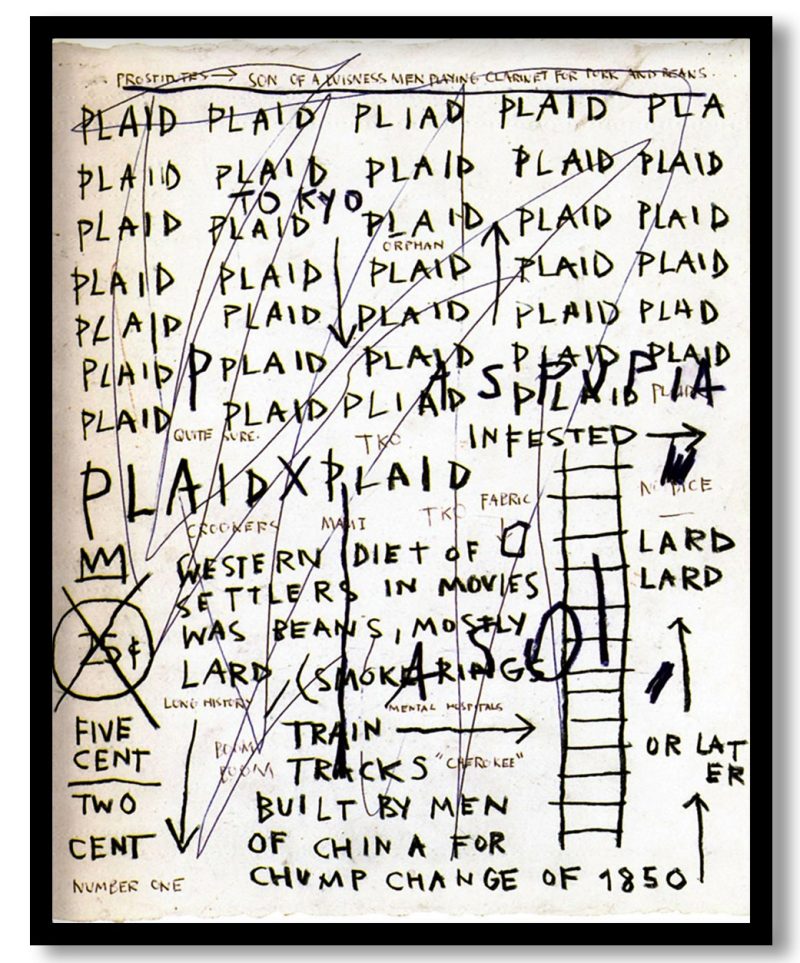 PROSTITUTES → SON OF A BUISNESS MEN PLAYING CLARINET FOR PORK AND BEANS.
PLAID PLAID PLIAD PLAID PLA
PLAID PLAID PLAID PLAID PLAID
TOKYO
PLAID PLAID PLAID PLAID PLAID
ORPHAN
PLAID PLAID PLAID PLAID PLAID
PLAID PLAID PLAID PLAID PLAD
PLAID P PLAID PLAID PLAID PLAID
PLAID PLAID PLIAD PLAID
QUITE SURE. TKO INFESTED →
PLAID X PLAID
CROOKERS MAUI TKO FABRIC
WESTERN DIET OF LARD
SETTLERS IN MOVIES LARD
25¢ WAS BEANS, MOSTLY
LARD (SMOKE RINGS
LONG HISTORY MENTAL HOSPITALS
FIVE TRAIN → OR LAT
CENT BOOM TRACKS "CHEROKEE" ER
BOOM
TWO BUILT BY MEN
CENT OF CHINA FOR
NUMBER ONE CHUMP CHANGE OF 1850